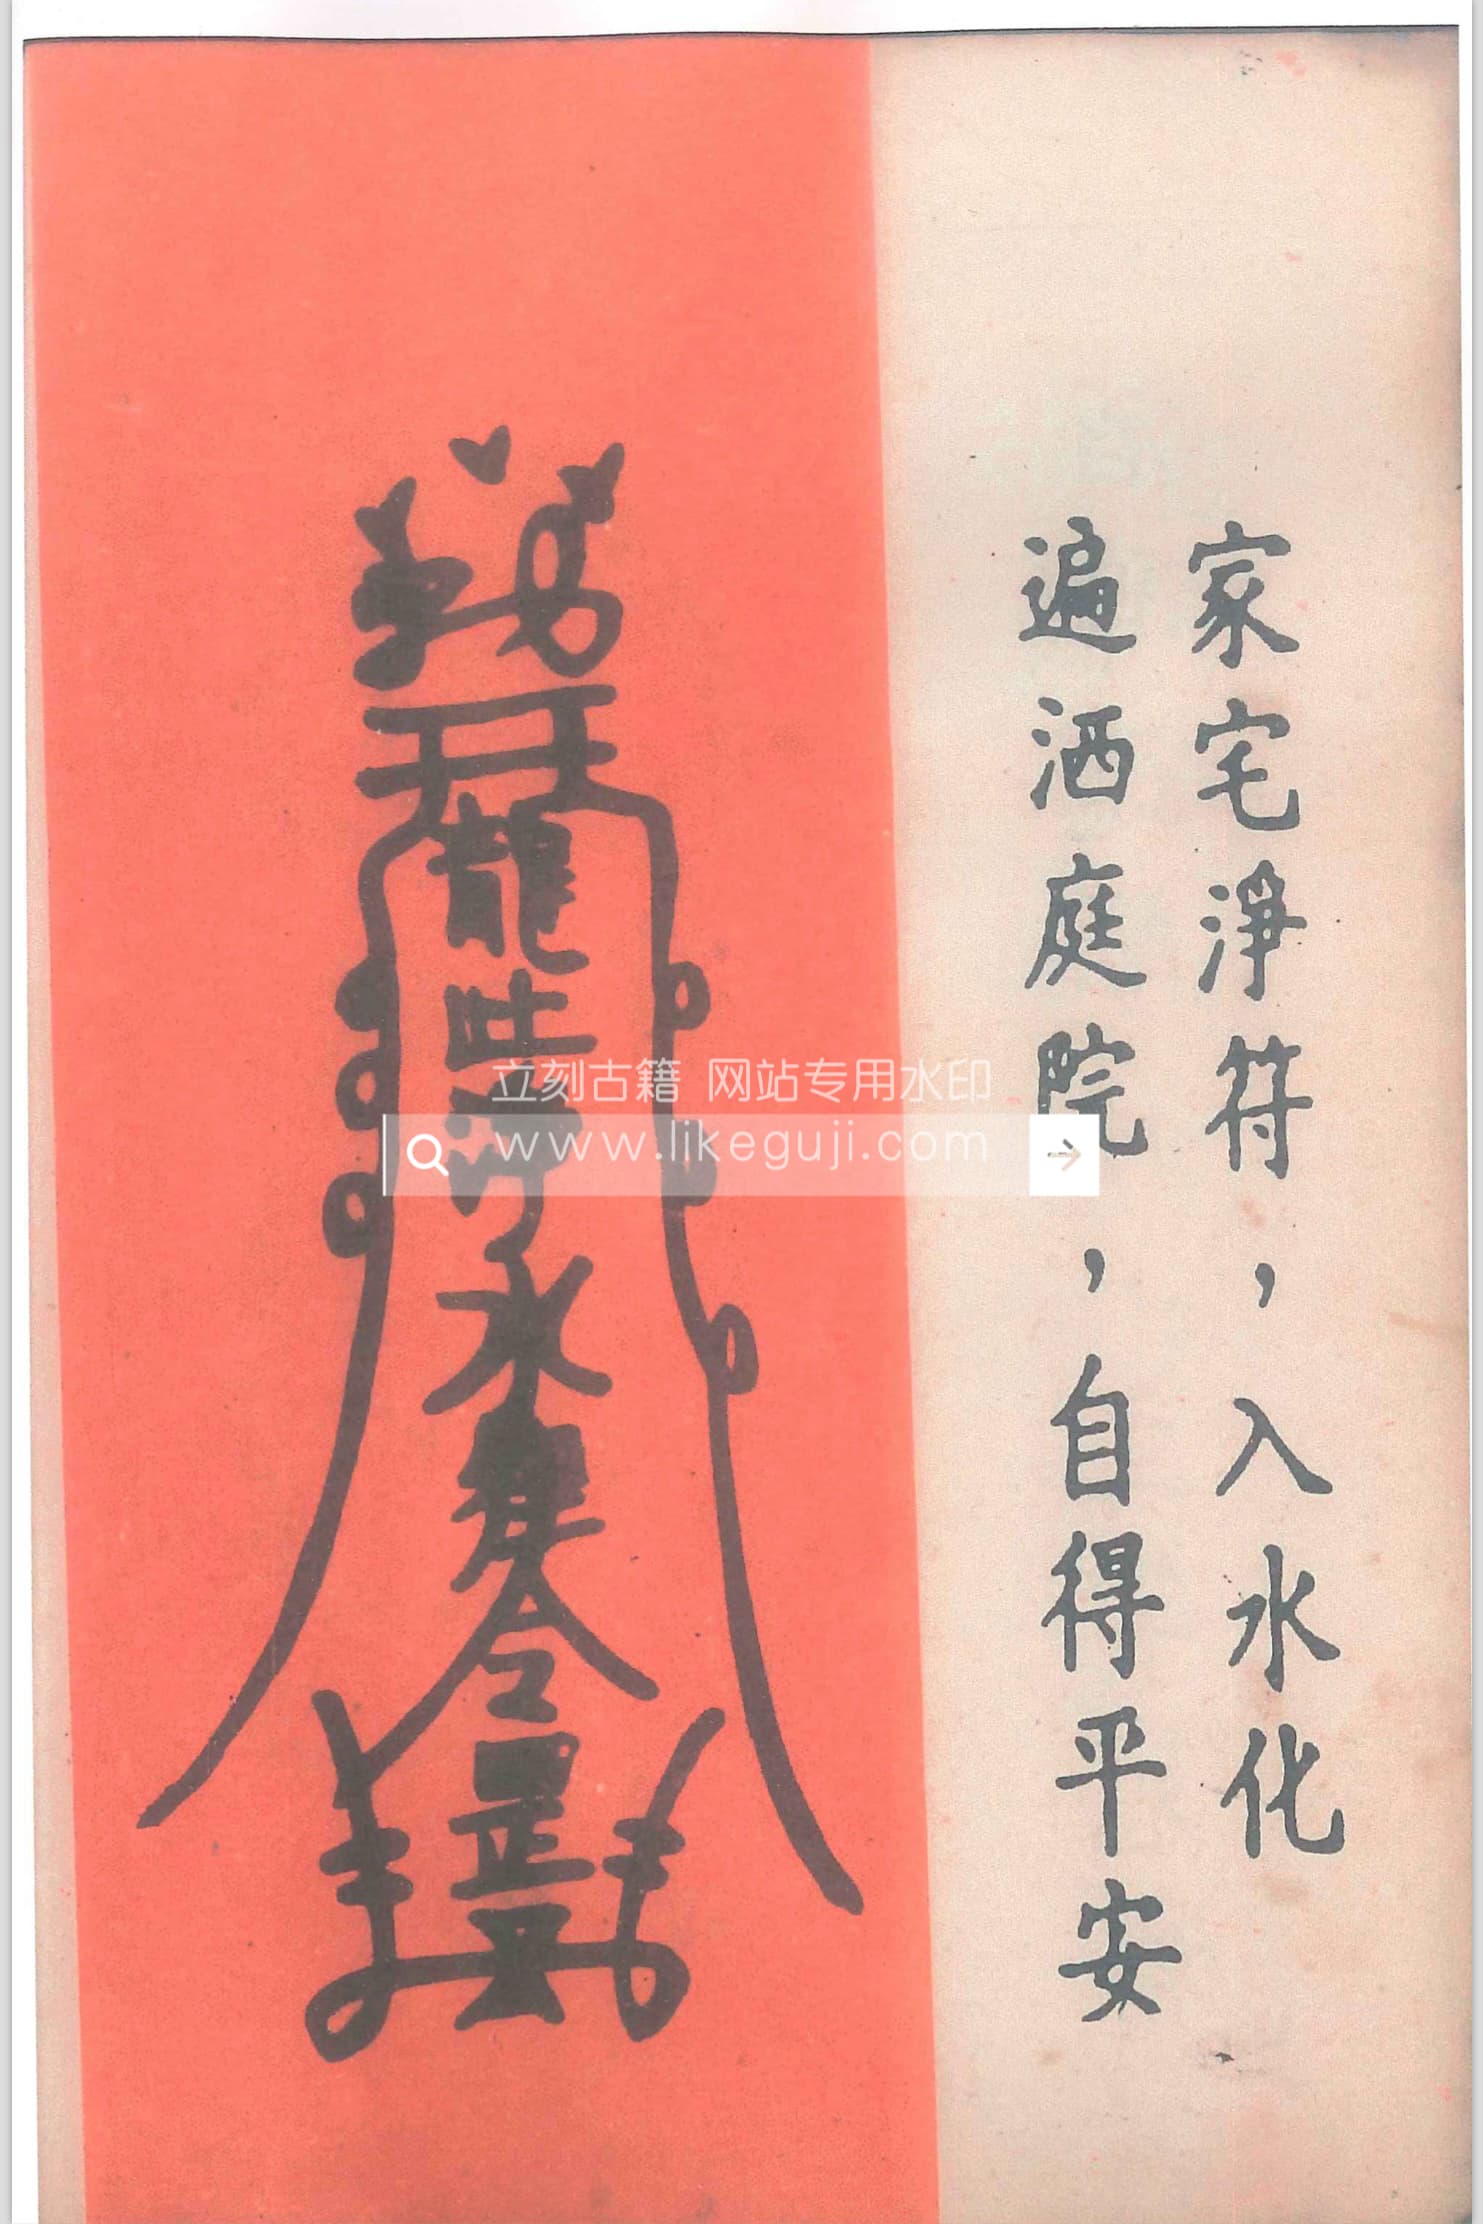 家宅淨符，入水化
遍洒庭院，自得平安
龍
水
令
立刻古籍 网站专用水印
www.likeguji.com